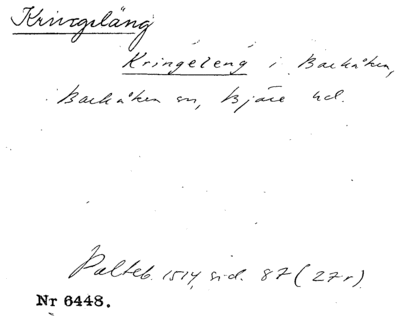 Kringeläng
Kringeleng i Barkåkra,
Barkåkra sn, Bjäre hd.
Palteb. 1514, sid. 87 (27r).
Nr 6448.